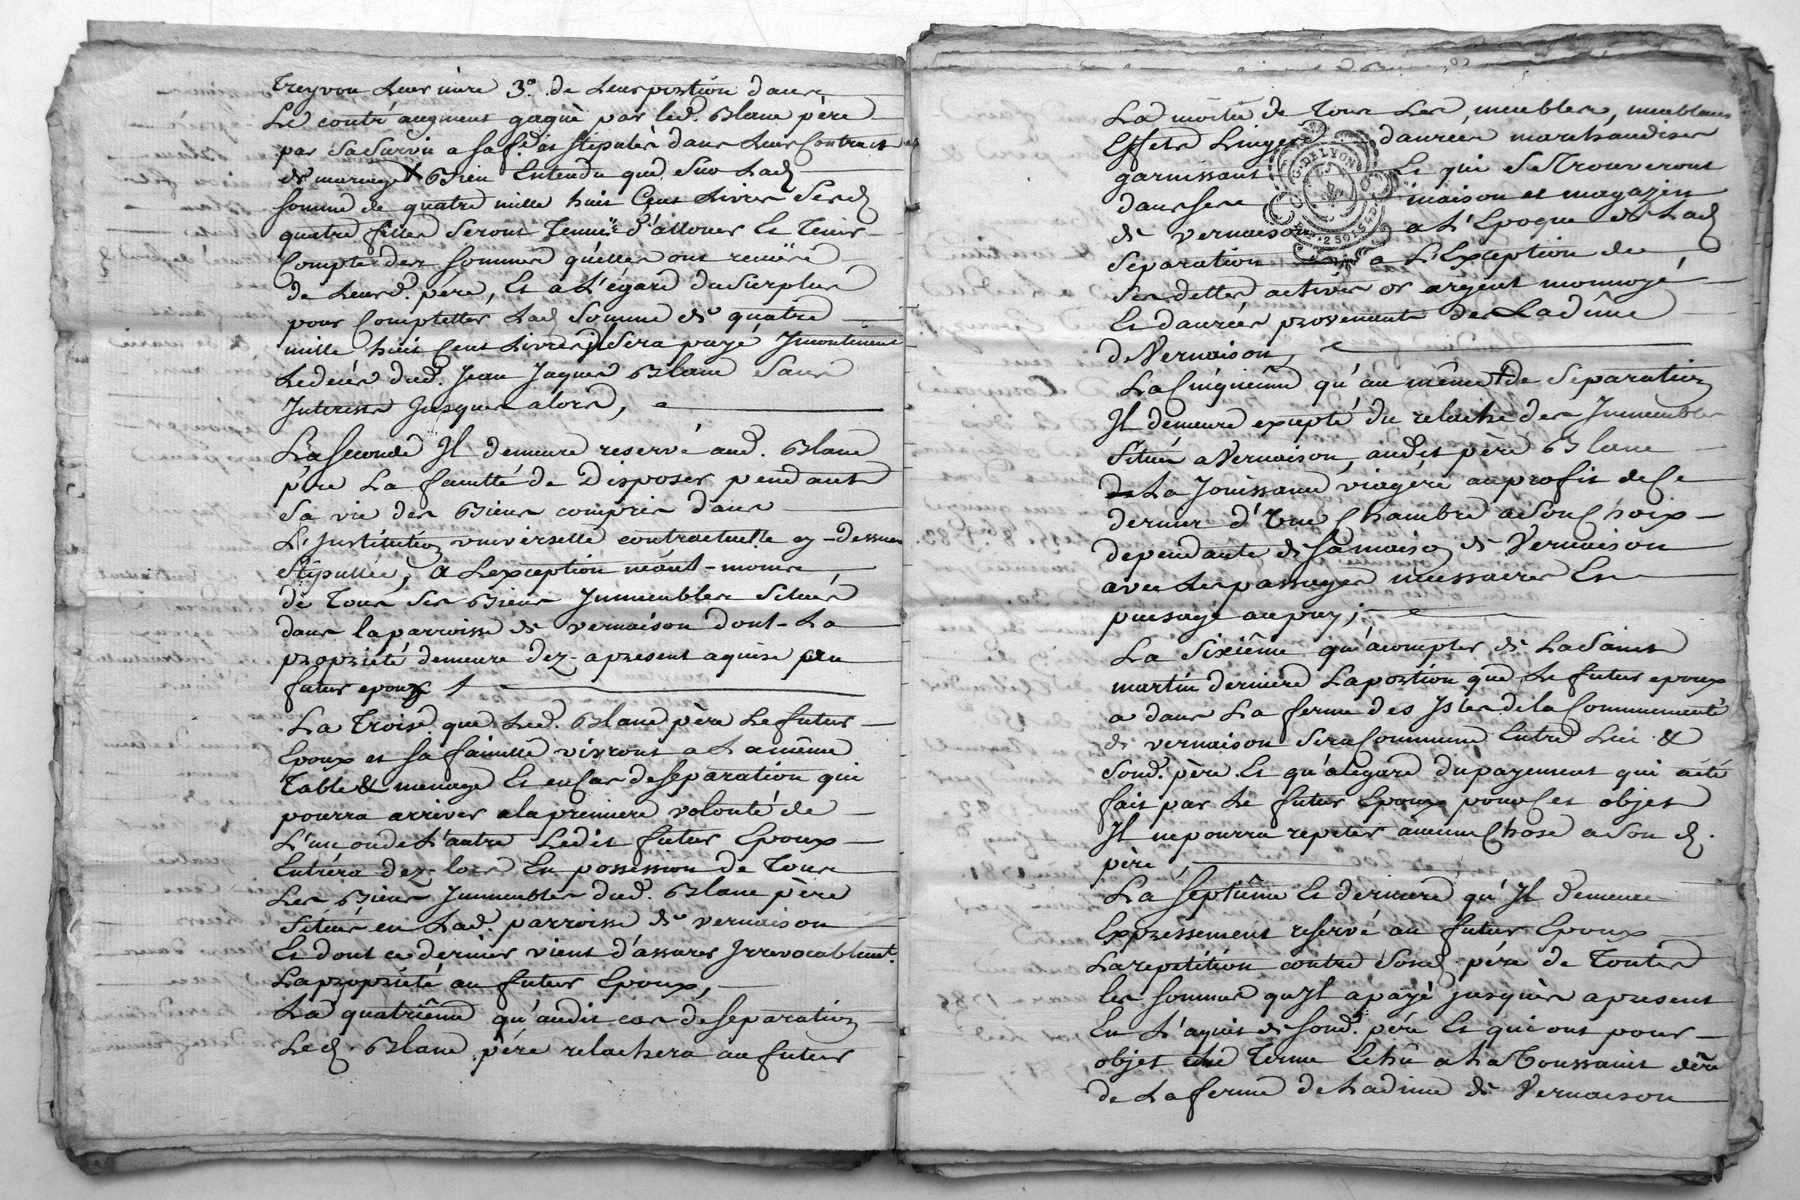 Treyvon Leur mère 3.° de Leur portion dans
Le contr'augment gagné par led. Blanc père
par Sa Survie a sa f.e et stipulés dans Leur Contract
de mariage Bien Entendu que Sur Lad
somme de quatre mille huit Cent Livres Sesd
quatre filles Seront Tenues d'allouer Et Tenir
Compte des sommes quélles ont reçuës
de Leurd. père, Et a L'égard du Surplus
pour Completter Lad Somme de quatre
mille huit Cent Livres Il Sera payé Incontinent
Ledecés dud. Jean Jaques Blanc Sans
Interests Jusques alors,
La Seconde Il demeure reservé aud. Blanc
père La faculté de Disposer pendant
Sa vie des Biens compris dans
L'Institution universelle contractuelle cy-dessus
Stipullée, a Lexception néant-moins
de Tous Ses Biens Immeubles Situés
dans la parroisse de vernaison dont La
propriété demeure dez-apresent aquise au
futur epoux
La Trois.e que Led. Blanc père Le futur
Epoux et sa famille vivront a La même
Table & menage Et en Cas de separation qui
pourra arriver a la premiere volonté de
L'un ou de L'autre Ledit futur Epoux
Entrera dez-lors En possession de Tous
Les Biens Immeubles dud. Blanc père
Situés en Lad. parroisse de vernaison
Et dont ce dernier vient d'assurer Irrevocablemt.
La propriété au futur Epoux,
La quatriême qu'audit cas de Separation
Led. Blanc père relachera au futur
La moitié de Tous Les meubles, meublans
Effets Linges danrées marchandises
garnissant Et qui Se Trouveront
dans Ses maison et magazin
de vernaison a L'Epoque de Lad
Separation a L'Exception de
Ses dettes actives or argent monnoyé
Et danrées provenants de La dîme
de Vernaison,
La Cinquiême qu'au même de Separation
Il demeure excepté du relache des Immeubles
Situés a Vernaison, audit père Blanc
La Jouissance viagére au profit de Ce
dernier d'Une Chambre a Son Choix
dependante de Sa maison de Vernaison
avec Les passages necessaires Et
puisage au puy;
La Sixiême qu'acompter de La Saint
martin derniere La portion que Le futur epoux
a dans La ferme des Isles de la Communauté
de vernaison Sera Commune Entre Lui &
Sond. père Et qu'a legard du payement qui a été
fait par Le futur Epoux pour Cet objet
Il ne pourra repeter aucune Chose a Son d.
père,
La Septiême Et derniere qu'Il demeure
Expressement reservé au futur Epoux
La repetition contre Sond. père de Toutes
les sommes qu'Il a payé jusques apresent
En L'aquit de Sond. père Et qui ont pour
objet Terme Echû a La Toussaint dere
de La ferme de La dime de Vernaison
G. DE LYON
2 SOLS